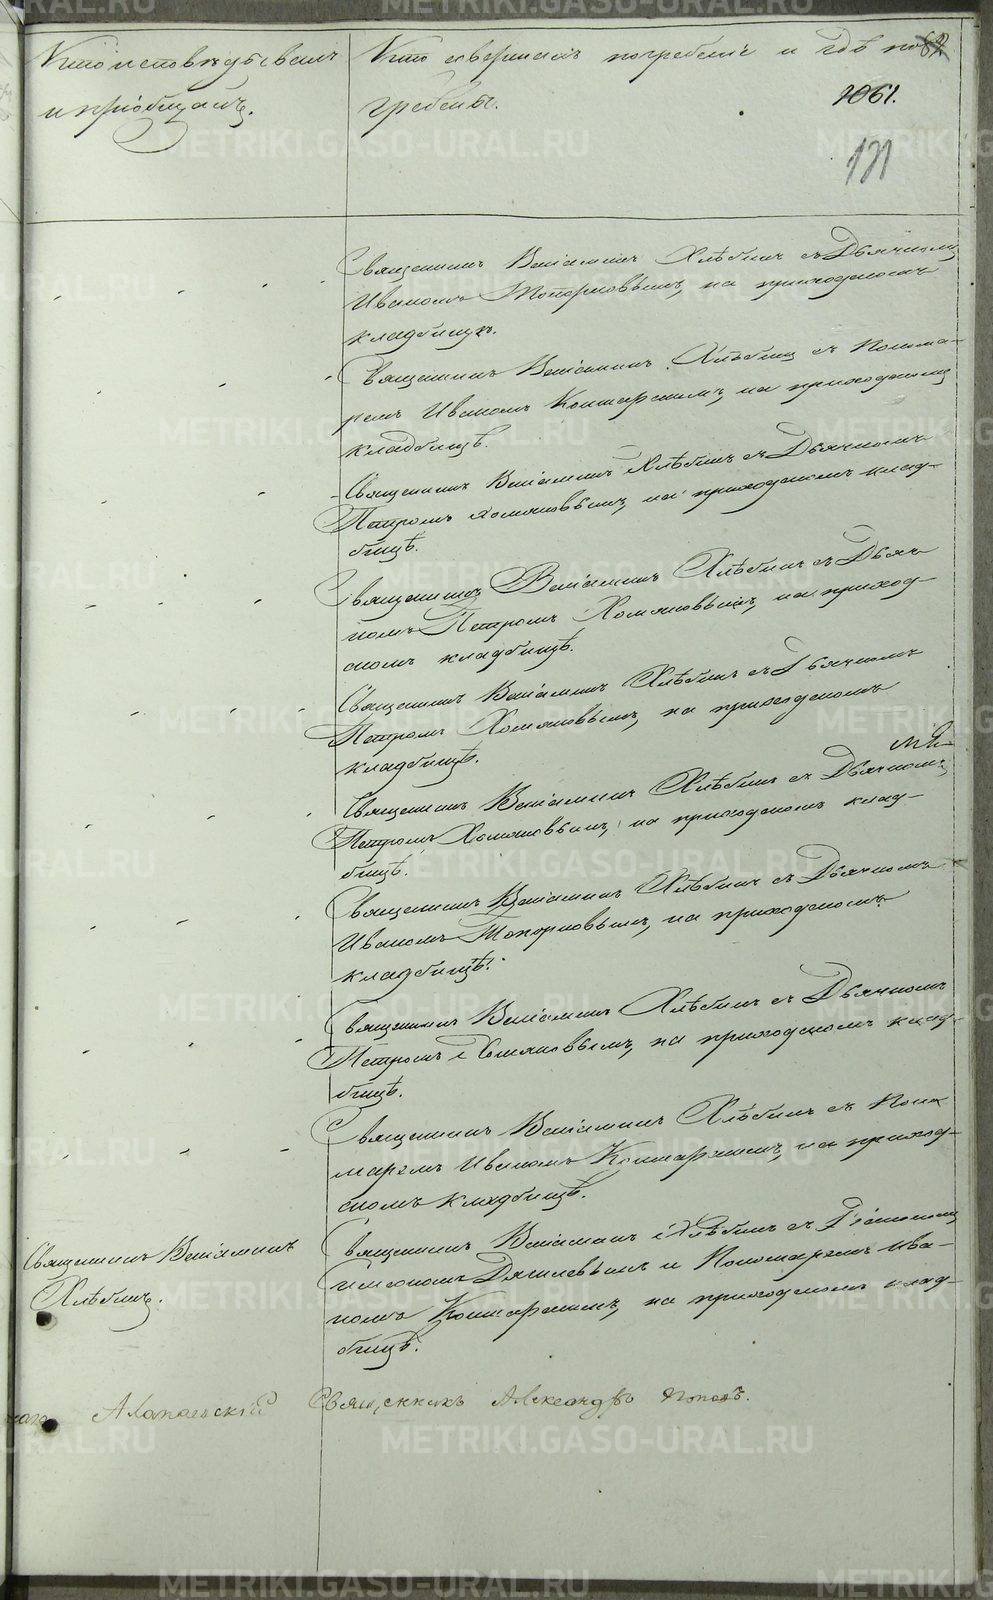 Кто исповѣдывалъ
и пріобщалъ.
Кто совершалъ погребеніе и гдѣ по-
гребены.
1061.
171
Священникъ Веніаминъ Хлѣбинъ съ Дьячкомъ
Иваномъ Топорковымъ, на приходскомъ
кладбищѣ.
Священникъ Веніаминъ Хлѣбинъ съ Понома-
ремъ Иваномъ на приходскомъ
кладбищѣ.
Священникъ Веніаминъ Хлѣбинъ съ Дьячкомъ
Петромъ Хомяковымъ, на приходскомъ клад-
бищѣ.
Священникъ Веніаминъ Хлѣбинъ съ Дьяч-
комъ Петромъ Хомяковымъ, на приход-
скомъ кладбищѣ.
Священникъ Веніаминъ Хлѣбинъ съ Дьячкомъ
Петромъ Хомяковымъ, на приходскомъ
кладбищѣ.
Священникъ Веніаминъ Хлѣбинъ съ Дьячкомъ
Петромъ Хомяковымъ, на приходскомъ клад-
бищѣ.
Священникъ Веніаминъ Хлѣбинъ съ Дьячкомъ
Иваномъ Топорковымъ, на приходскомъ
кладбищѣ.
Священникъ Веніаминъ Хлѣбинъ съ Дьячкомъ
Петромъ Хомяковымъ, на приходскомъ клад-
бищѣ.
Священникъ Веніаминъ Хлѣбинъ съ Поно-
маремъ Иваномъ на приход-
скомъ кладбищѣ.
Священникъ Веніаминъ
Хлѣбинъ.
Священникъ Веніаминъ Хлѣбинъ съ Діакономъ
Симеономъ Дягилевымъ и Пономаремъ Ива-
номъ на приходскомъ клад-
бищѣ.
Алапаевскій Священникъ Александръ Поповъ.
METRIKI.GASO-URAL.RU